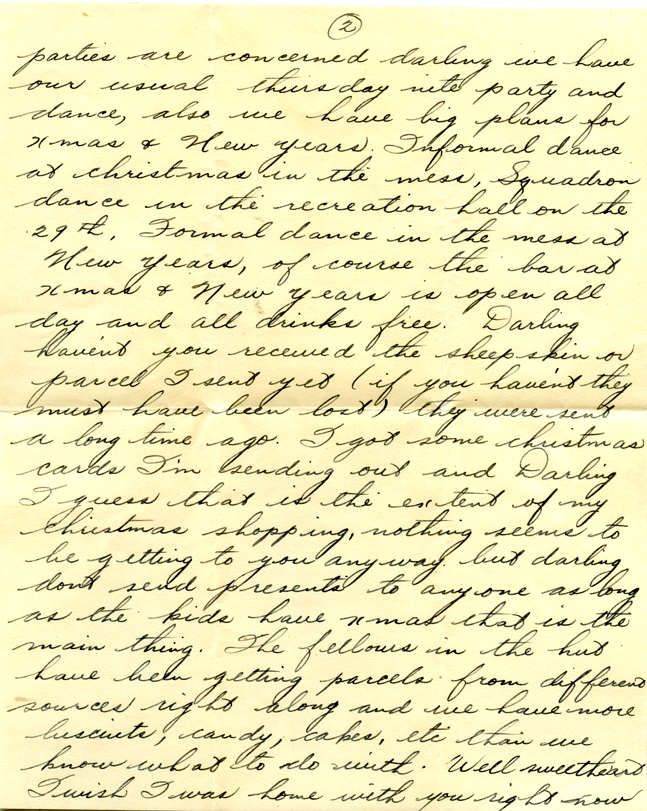 2
parties are concerned darling ive have
our usual thursday nite party and
dance, also we have big plans for
xmas & New years. Informal dance
at christmas in the mess, Squadron
dance in the recreation hall on the
29th. Formal dance in the mess at
New years, of course the bar at
xmas & New years is open all
day and all drinks free. Darling
haven't you received the sheepskin or
parcel I sent yet (if you haven't they
must have been lost) they were sent
a long time ago. I got some christmas
cards I'm sending out and Darling
I guess that is the extent of my
christmas shopping, nothing seems to
be getting to you anyway. but darling
don't send presents to anyone as long
as the kids have xmas that is the
main thing. The fellows in the hut
have been getting parcels from different
sources right along and we have more
biscuits, candy, cakes, etc than we
know what to do with. Well sweetheart
I wish I was home with you right now